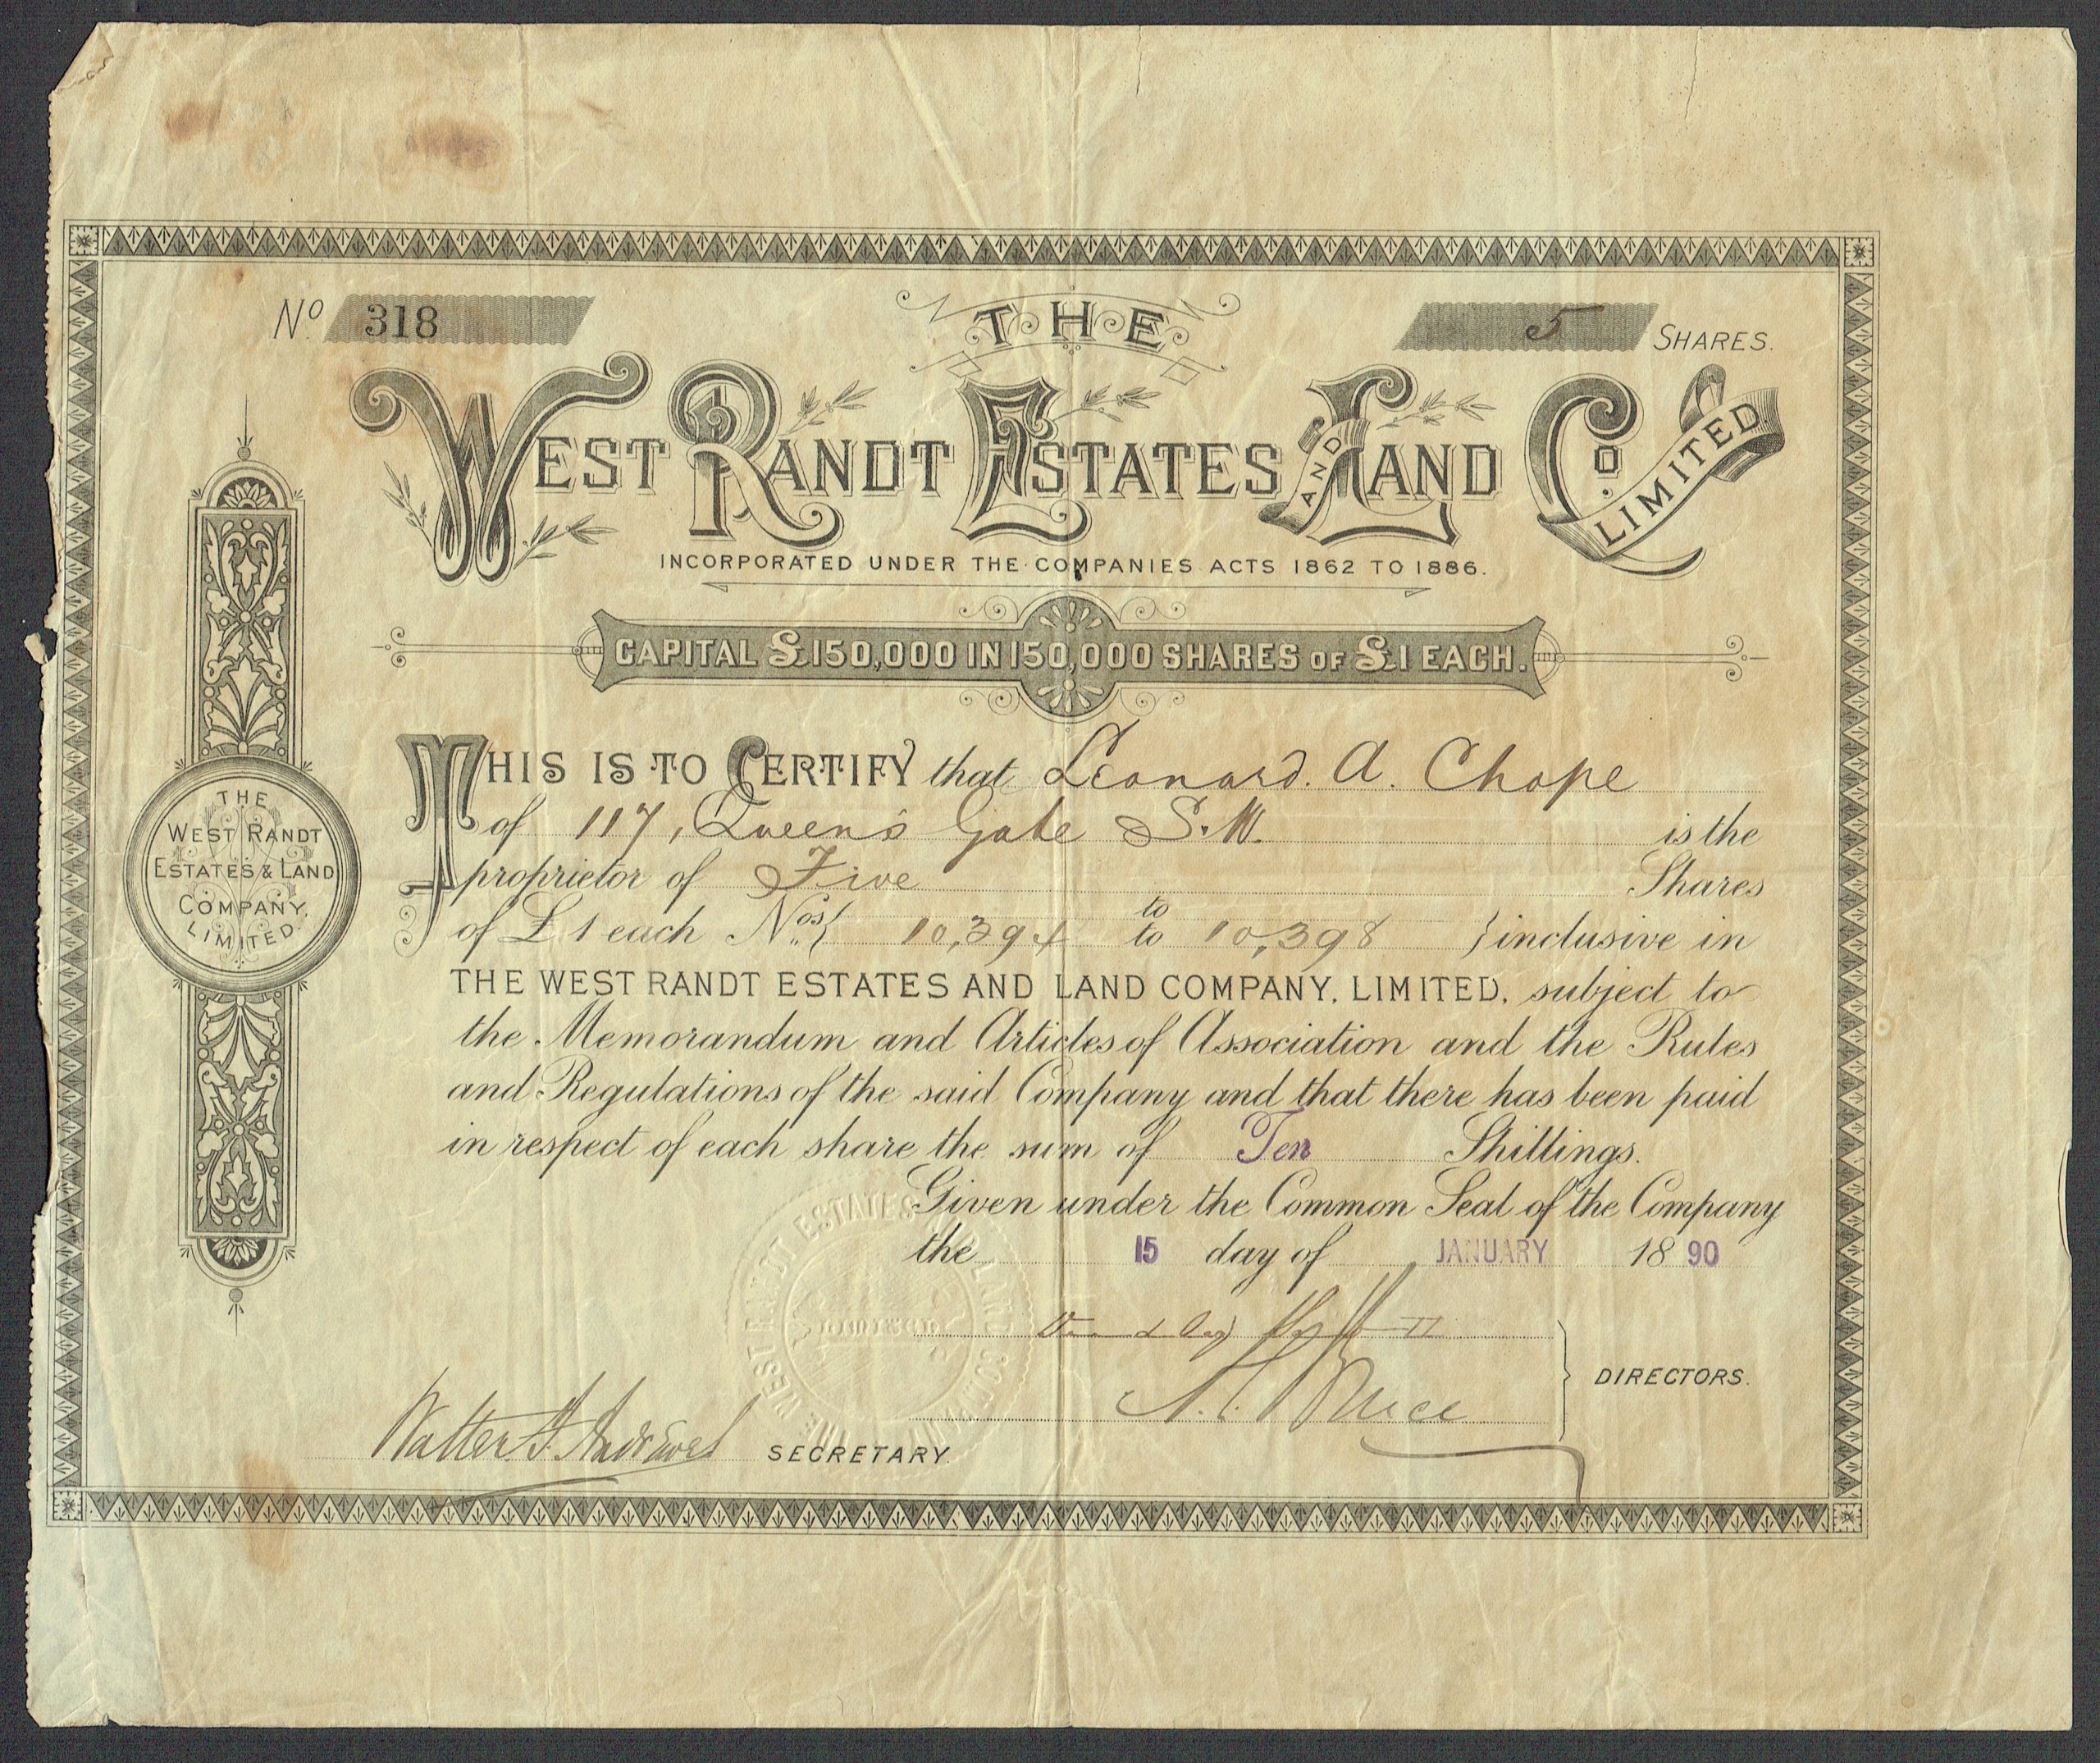 Nº 318
THE
5 SHARES.
WEST RANDT ESTATES AND LAND Cº. LIMITED
INCORPORATED UNDER THE COMPANIES ACTS 1862 TO 1886.
CAPITAL £150,000 IN 150,000 SHARES OF £1 EACH.
THIS IS TO CERTIFY that Leonard. A. Chope
of 117, Queen's Gate S.W. is the
proprietor of Five Shares
to
of £1 each Nos. { 10,394 to 10,398 } inclusive in
THE WEST RANDT ESTATES AND LAND COMPANY, LIMITED, subject to
the Memorandum and Articles of Association and the Rules
and Regulations of the said Company and that there has been paid
in respect of each share the sum of Ten Shillings.
Given under the Common Seal of the Company
the 15 day of JANUARY 1890
DIRECTORS.
Walter F. Andrews SECRETARY.
THE
WEST RANDT
ESTATES & LAND
COMPANY,
LIMITED.
THE WEST RANDT ESTATES AND LAND COMPANY
LIMITED